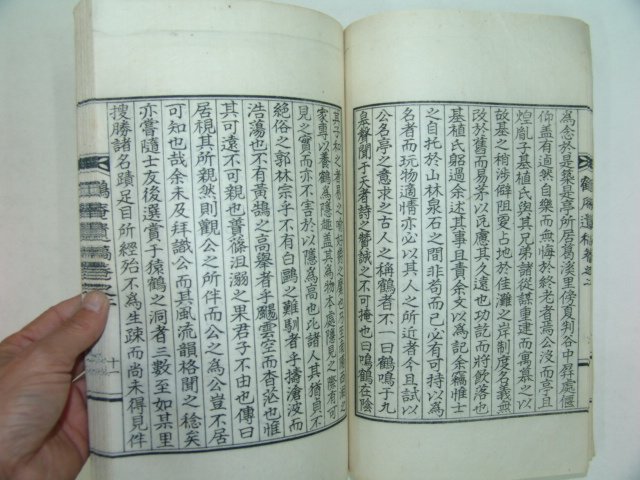 為念於是築是亭所居葛淺里傍負判谷中昇處偃
仰盖有逌然自樂而無悔於終老者焉公沒而亭且
煌胤子基植氏與其兄弟諸從謀重建而寓慕之以
故基之稍涉僻阻更占地於佳灘之岸制度名義無
改於舊而易茅以瓦慮其久遠也功訖而將飲落也
基植氏躬過余述其事且責余文以為記余竊惟士
之自托於山林泉石之間非苟而已必有可持以為
名者而玩物適情亦必以其人之所近者今且試以
公名亭之意求之古人之稱鶴者不一曰鶴鳴于九
臯聲聞于天者詩之贊誠之不可掩也曰鳴鶴在陰
其子和之者易之
家專以養鶴為隱趣盖其為物本處隱見之際有可
見之實而亦不害於以隱為高也此諸人其猶貞不
絕俗之郭林宗乎不有白鷗之難馴者乎擣滄波而
浩蕩也不有黃鵠之高舉者乎颺雲空而杳茫也惟
其可遠不可親也實篠沮溺之果君子不由也傳曰
居視其所親然則觀公之所伴而公之為公豈不居
可知也哉余未及拜識公而其風流韻格聞之稔矣
亦嘗隨士友後選賞于猿鶴之洞者三數至如某里
搜勝諸名蹟足目所經殆不為生疎而尚未得見伴
鶴庵遺稿卷之
十一